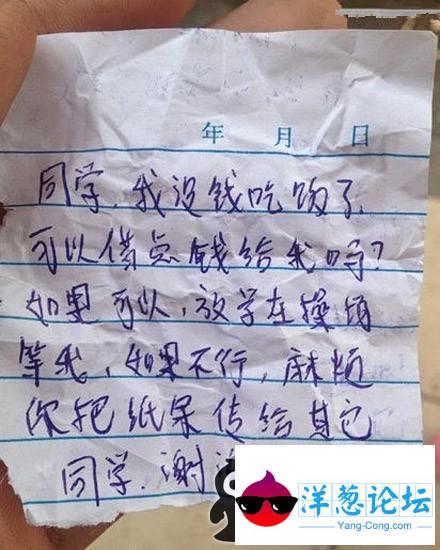 年 月 日
同学.我没钱吃饭了.
可以借点钱给我吗?
如果可以,放学在操场
等我,如果不行,麻烦
你把纸条传给其它
同学.谢
洋葱论坛
Yang-Cong.com